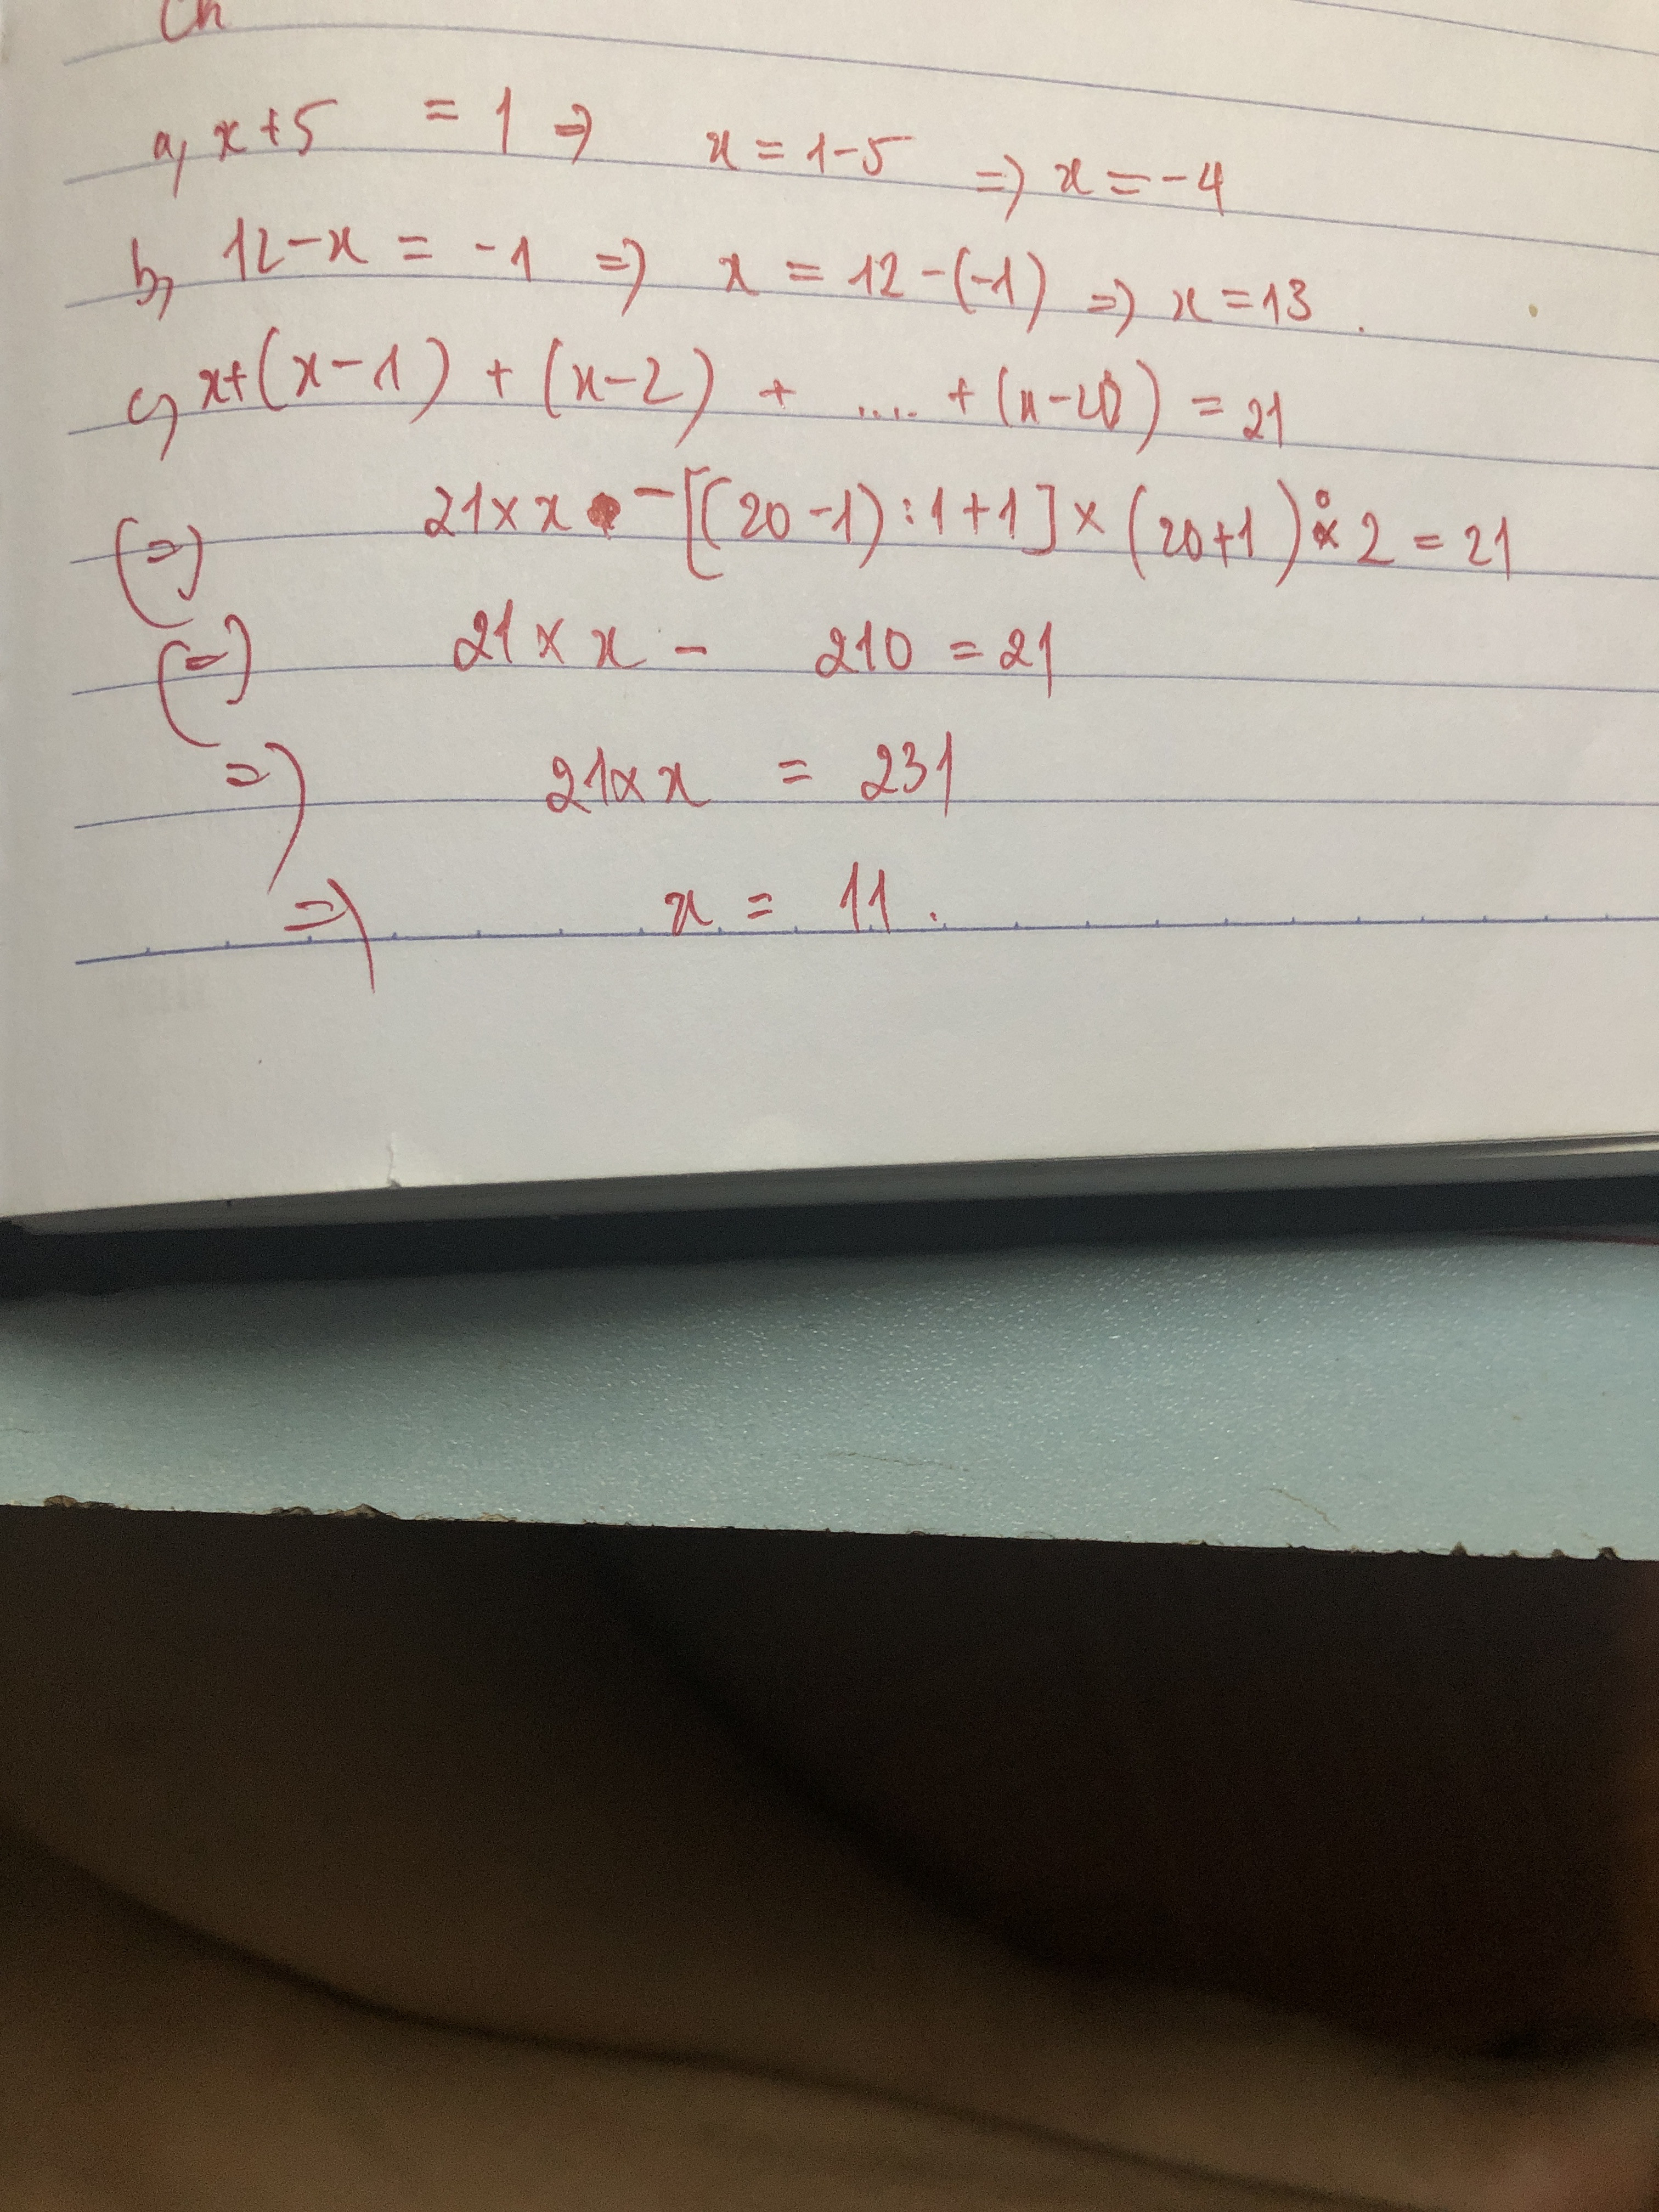 a, x+5 = 1 => x = 1-5 => x = -4
b, 12-x = -1 => x = 12-(-1) => x = 13.
c, x+(x-1) + (x-2) + .... + (x-20) = 21
(=) 21 x x - [(20-1):1+1] x (20+1) : 2 = 21
(=) 21 x x - 210 = 21
=) 21 x x = 231
=) x = 11.